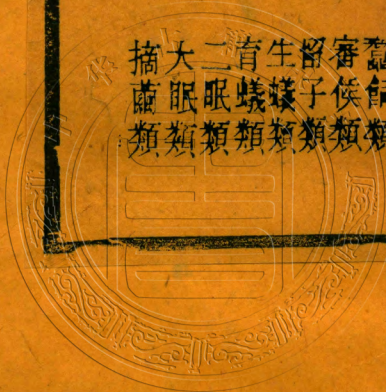 類
審候類
留子類
生蟻類
育蟻類
二眠類
大眠類
摘繭類